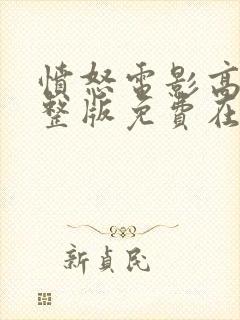 憤怒電影高
整版免費在
新貞民